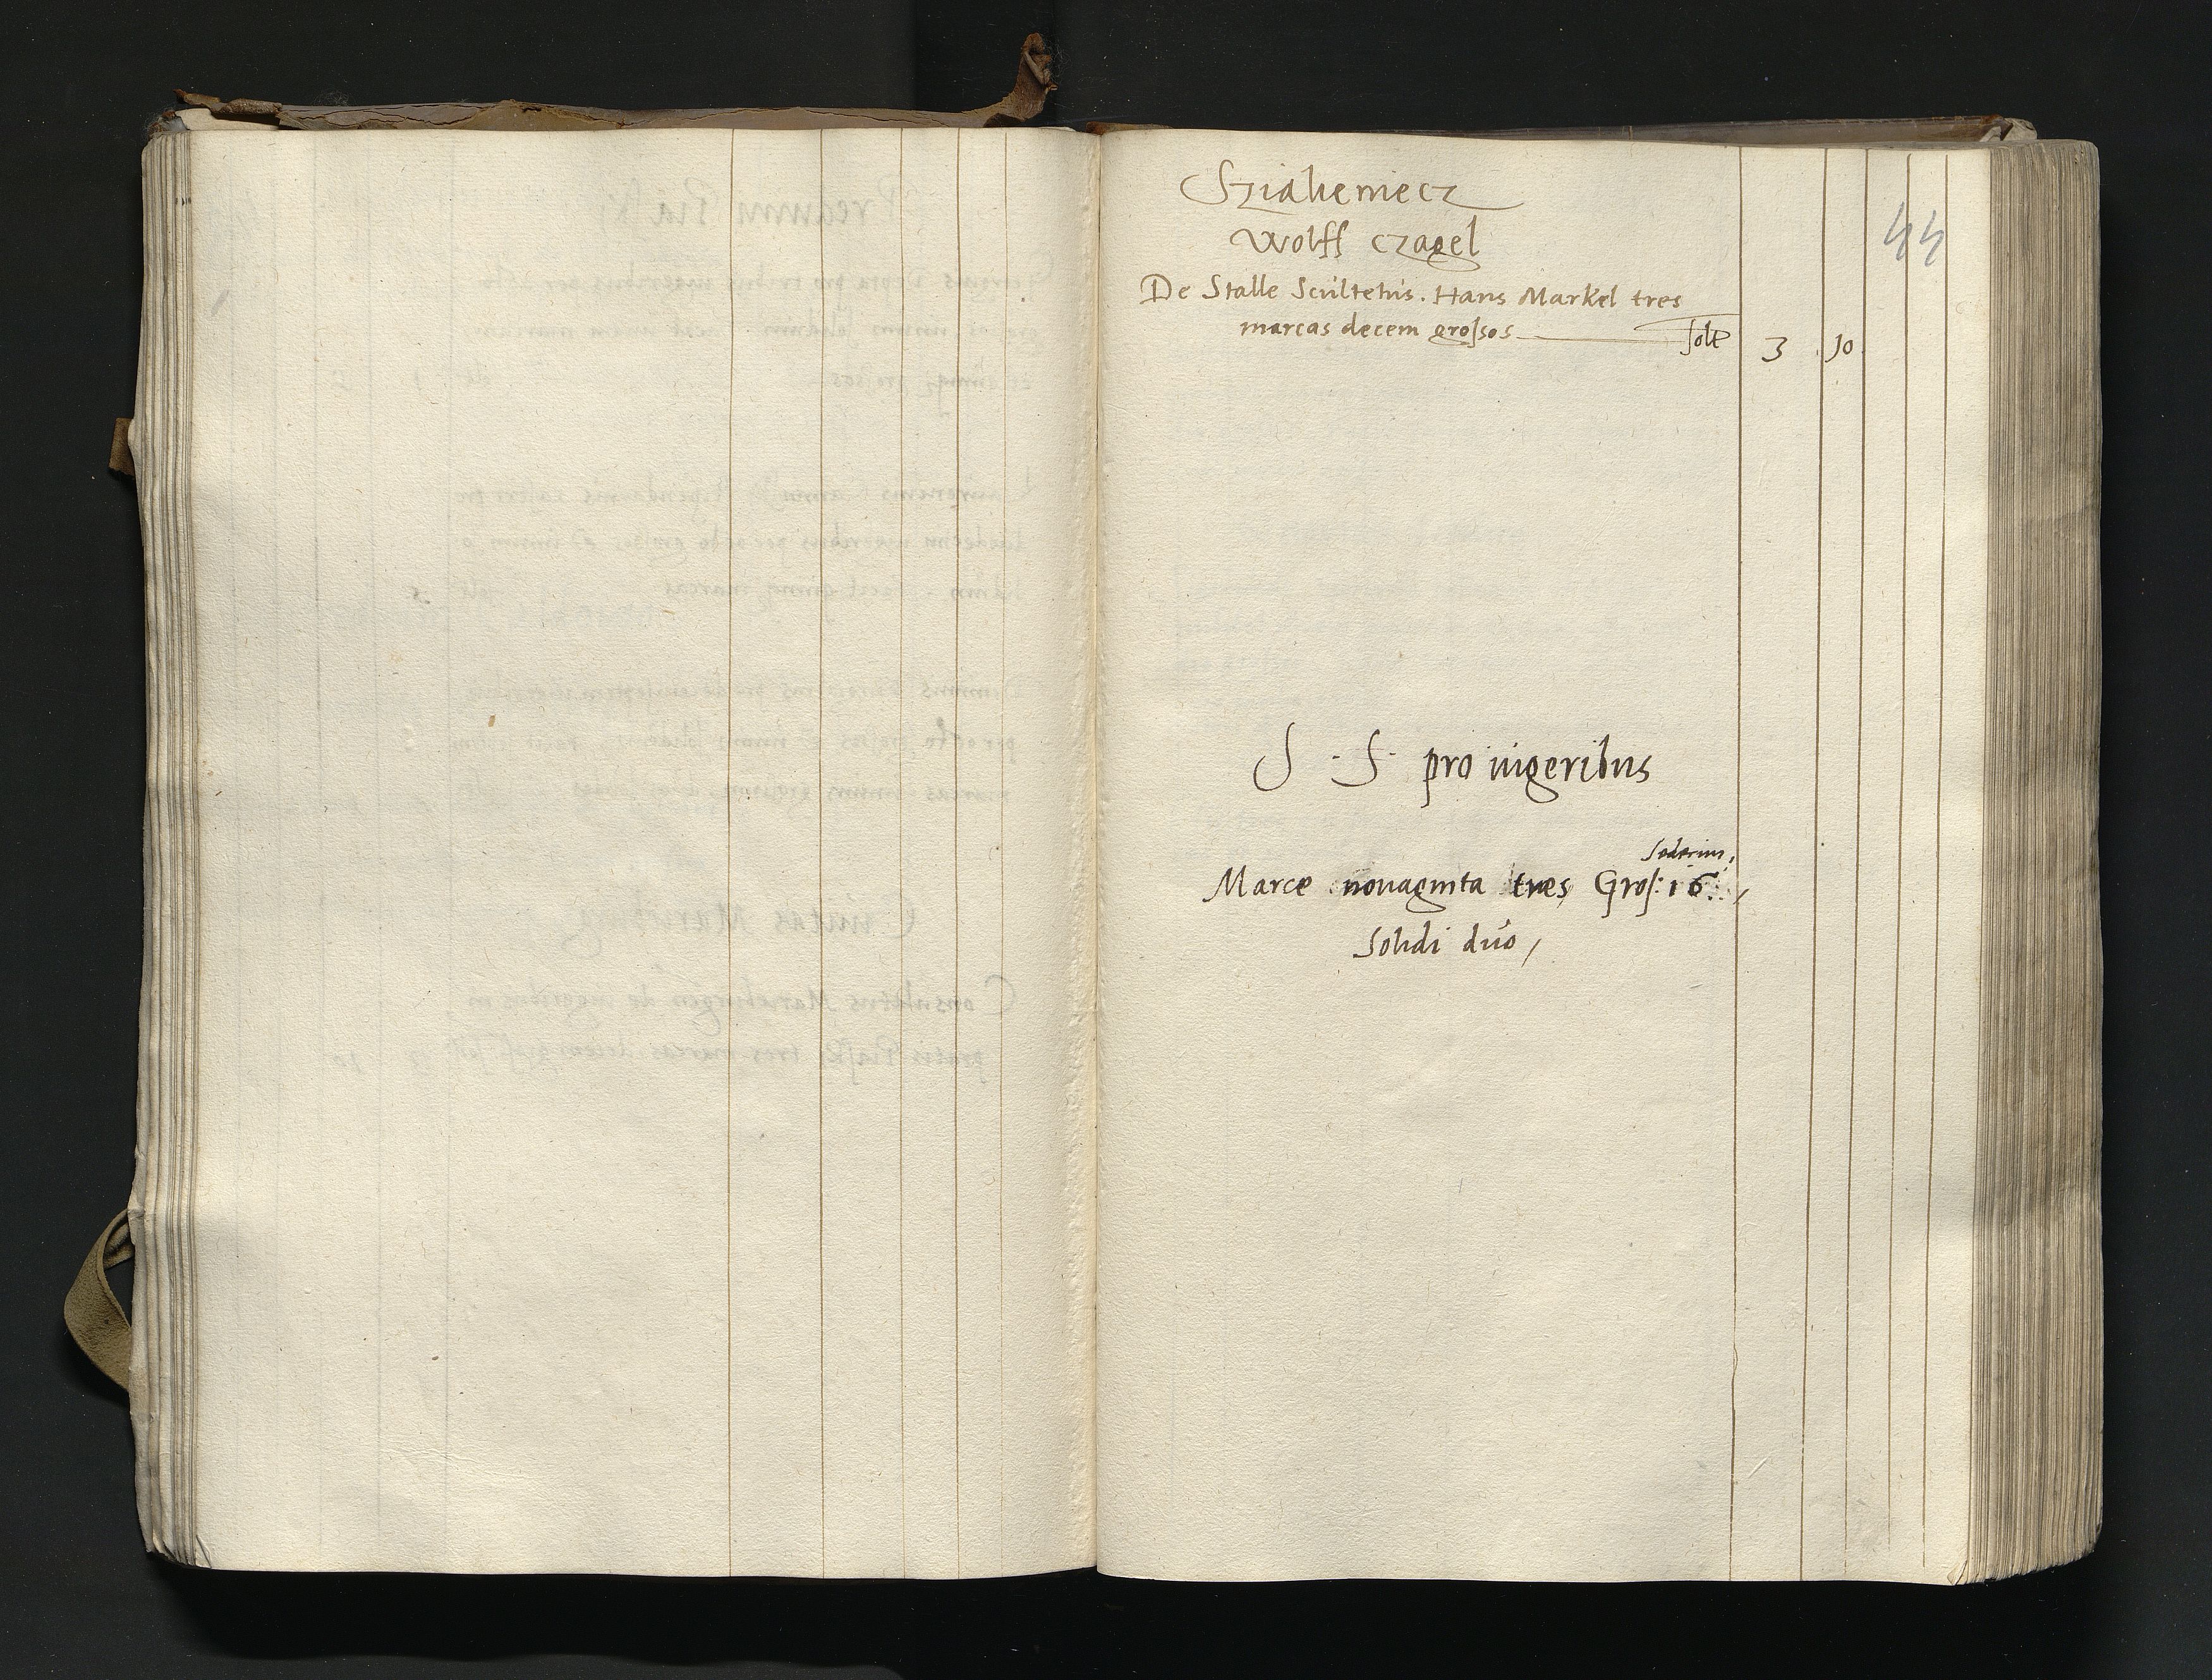 44
Sziaheniecz
Wolff Czagel
De Stalle Scultetus. Hans Markel tres
marcas decem grossos solt 3 10
S . S. pro iugeribus
Sedecim,
Marce nonaginta tres Gros: 16.
Solidi duo,